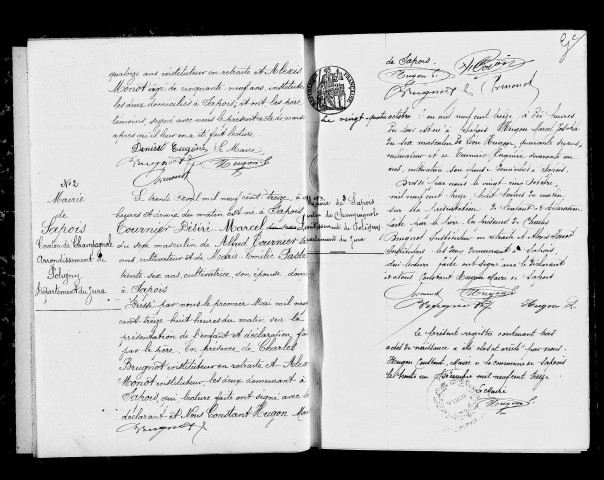 quatorze ans instituteur en retraite et Alexis
Monot âgé de cinquante neuf ans, instituteur
les deux domiciliés à Sapois; et ont les père
témoins signé avec nous le présent acte de
après qu'il leur en a été fait lecture
Daniset Eugène, le Maire
Brugnot Hugon C
Prumont
N° 2
Mairie
de
Sapois
Canton de Champagnole
Arrondissement de
Poligny
Département du Jura
Le trente avril mil neuf cent treize, à
heures et demie du matin est né à Sapois
Tournier Désiré Marcel
du sexe masculin de Alfred Tournier
ans cultivateur et de Marie Emilie
trente six ans, cultivatrice, son épouse, domi
à Sapois
Dressé par nous le premier Mai mil neuf
cent treize huit heures du matin sur la
présentation de l'enfant et déclaration fai
par le père. En présence de Charles
Brugnot instituteur en retraite et Alex
Monot instituteur, les deux demeurant à
Sapois qui lecture faite ont signé avec le
déclarant et Nous Constant Hugon Mai
Brugnot
de Sapois.
Hugon C
Brugnot
Prumont
Le vingt-quatre octobre mil neuf cent treize à dix heures
du soir est né à Sapois Hugon Marcel
du sexe masculin de Léon Hugon, quarante ans,
cultivateur et de Tournier Eugénie
ans, cultivatrice son épouse domiciliés à Sapois.
Dressé par nous le vingt cinq octobre
mil neuf cent treize huit heures du matin
sur la présentation de l'enfant et déclaration
faite par le père. En présence de Charles
Brugnot Instituteur en retraite et Alexis Monot
Instituteur les deux demeurant à Sapois
qui lecture faite ont signé avec le déclarant
et Nous Constant Hugon Maire de Sapois
Mairie de Sapois
Canton de Champagnole
Arrondissement de Poligny
Département du Jura
Prumont Hugon C
Hugon L
Le présent registre contenant trois
actes de naissance a été clos et arrêté par nous
Hugon Constant, Maire de la commune de Sapois
le trente un Décembre mil neuf cent treize
Le Maire
Hugon C